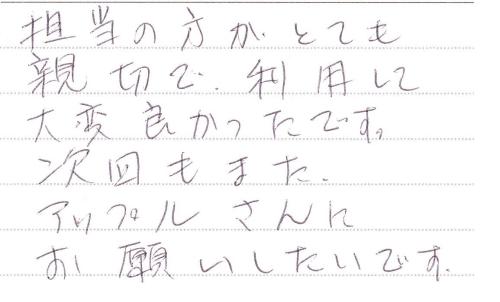 担当の方がとても
親切で、利用して
大変良かったです。
次回もまた、
アップルさんに
お願いしたいです。